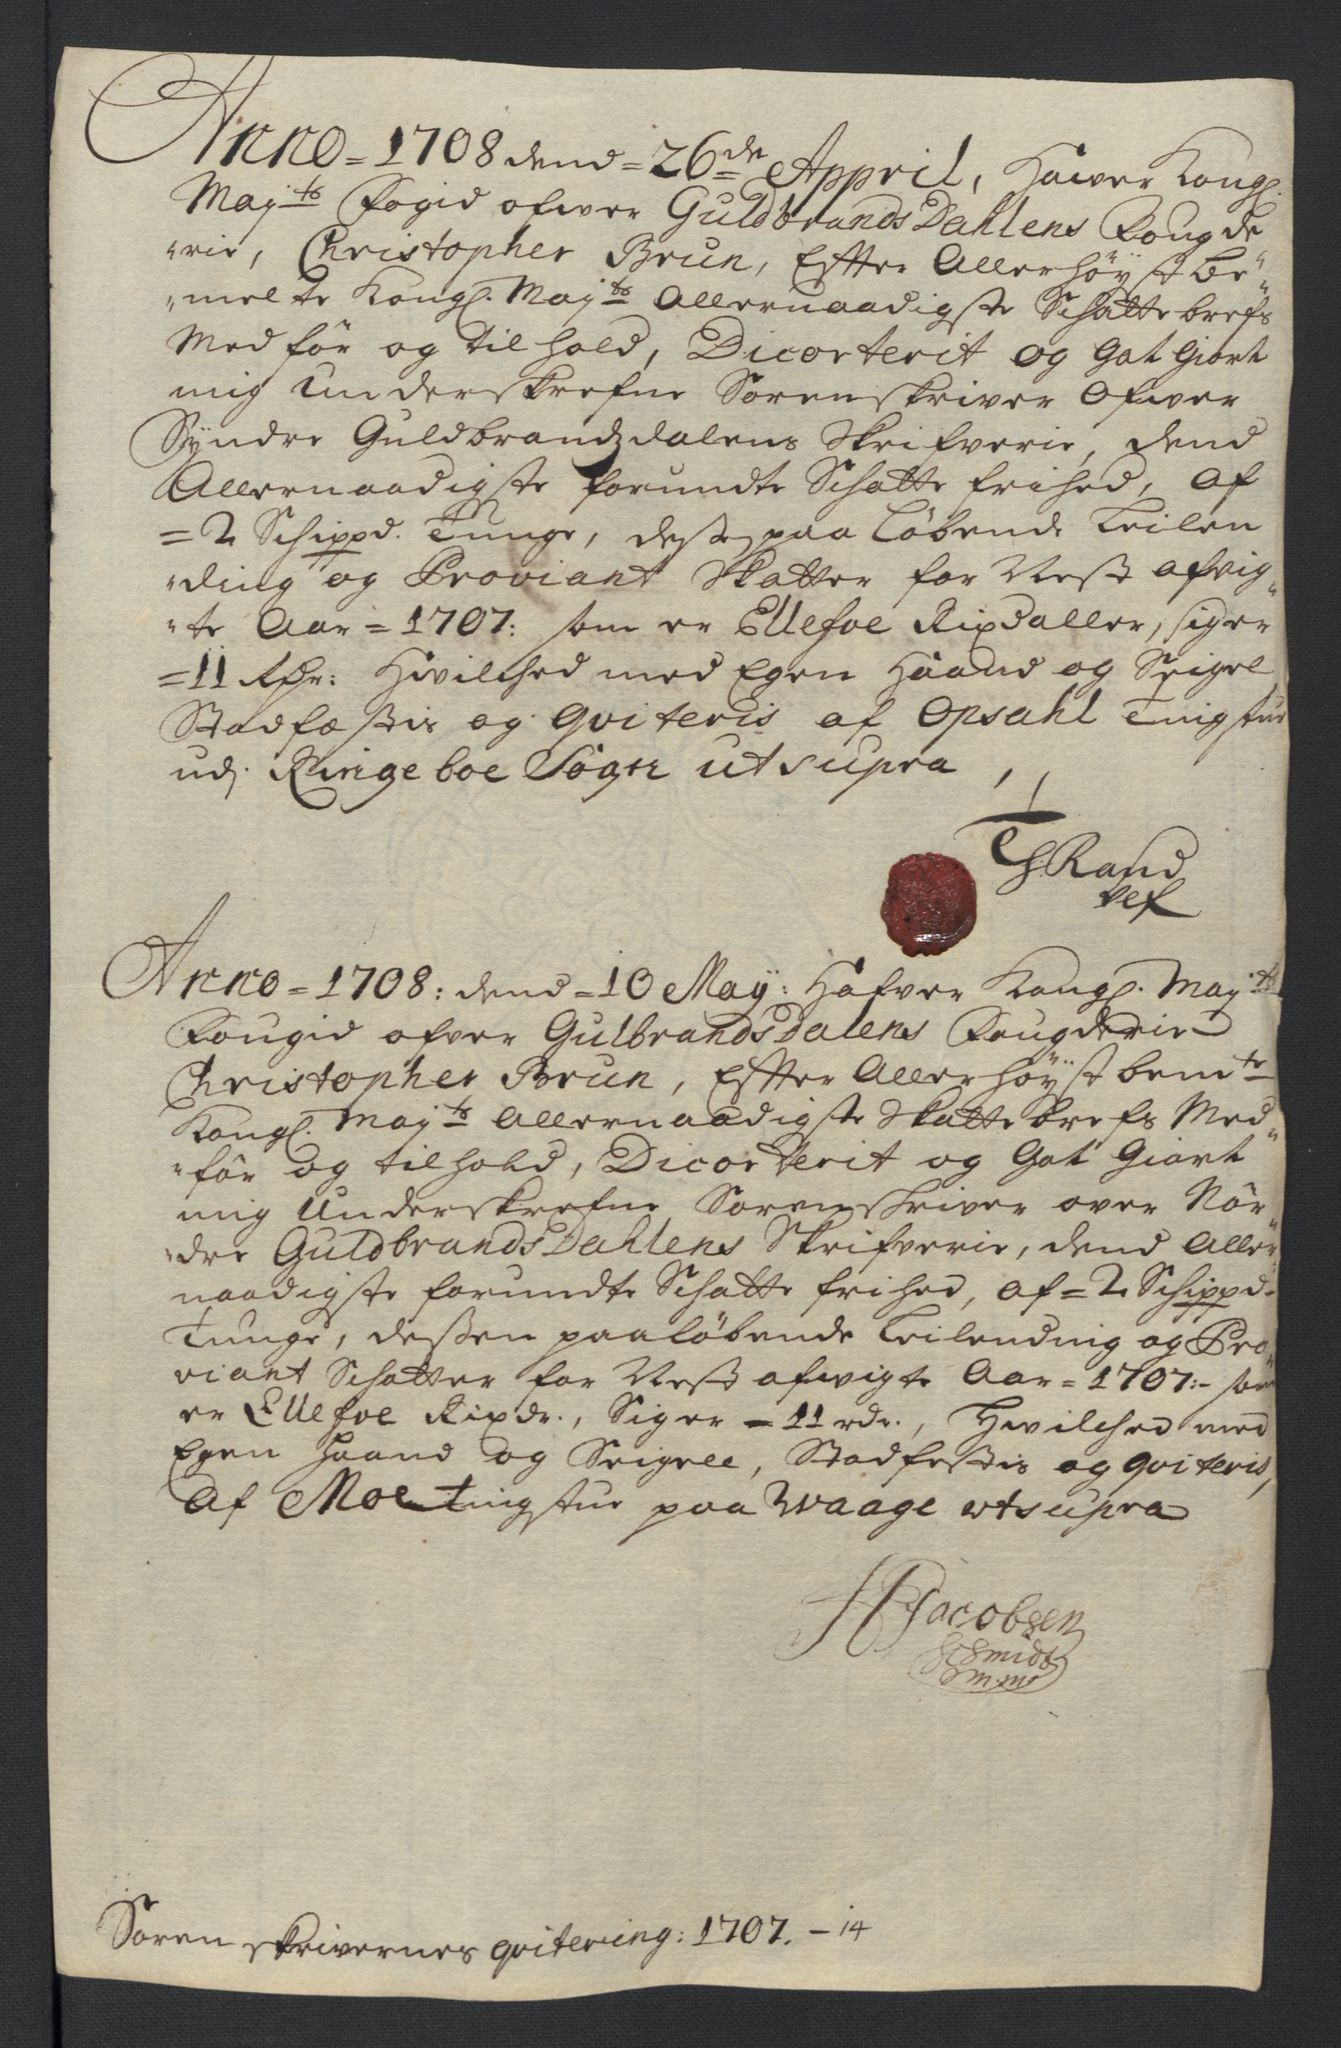 Anno = 1708 dend = 26de Appril, Hawer Kongl.
Mayts Fogid ofwer GuldbrandsDahlens Fougde
"rie, Christopher Brun, Effter Allerhöyst be"
"melte Kongl. Mayts Allernaadigste Schattebrefs
Medför og tilhold, Dicorterit og Got Giort
mig Underskrefne Sorenskriver Ofwer
Syndre Guldbrandzdalens Skrifverie, dend
Allernaadigste forundte Schatte frihed, Af
= 2 Schippd. Tunge, desse paa Löbende Leilen
"ding og Proviant Skatter for Nest afvig"
"te Aar = 1707: som er Ellefve Rixdaller, siger
= 11 Rdr: Hvilched med Egen Haand og Seigel
Stadfæstis og qviteris af Opsahl Tingstue
udj Ringeboe Sogn ut supra
Th Rand
Anno = 1708: dend = 10 May: Hafver Kongl. Mayts
Fougid ofver GulbrandsDalens Fougderie
Christopher Brun, Effter Allerhöyst bemte
Kongl. Mayts Allernaadigste Skattebrefs Med"
"för og tilhold, Dicorterit og Got Giort
mig Underskrefne Sorenskriver over Nör"
"dre GuldbrandsDahlens Skrifverie, dend Aller"
naadigste forundte Schatte frihed, Af = 2 Schippd
Tunge, dessen paaløbende Leilending og Pro"
viant Schatter for Nest afwigte Aar = 1707:- som
er Ellefve Rixdr., Siger = 11 rdr., Hwilched med
Egen Haand og Seigell, Stadfestis og qviteris,
Af Moe Tingstue paa Waage ut supra
HPJacobsen
Schmidt
m.m
Soren skrivernes qvitering: 1707. - 14